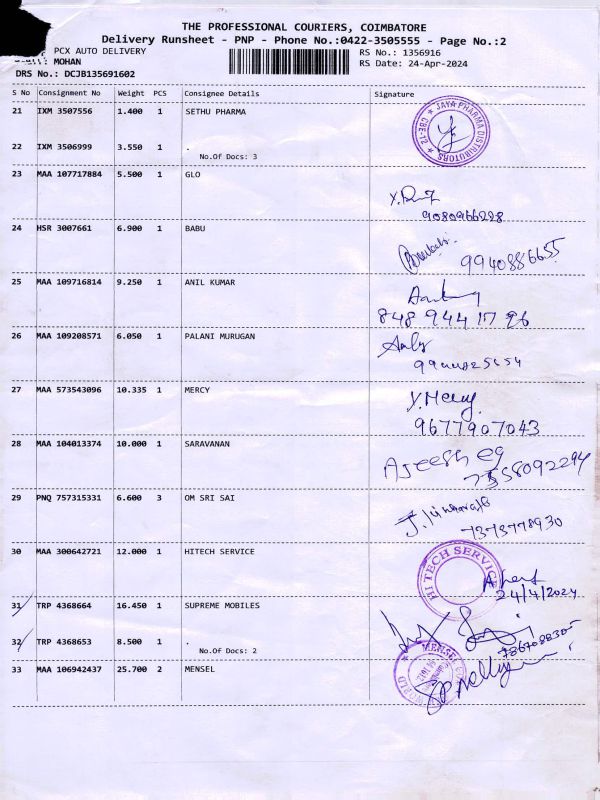 THE PROFESSIONAL COURIERS, COIMBATORE
Delivery Runsheet - PNP - Phone No.:0422-3505555 - Page No.:2
PCX AUTO DELIVERY
RS No.: 1356916
MOHAN
RS Date: 24-Apr-2024
DRS No.: DCJB135691602
S No Consignment No Weight PCS Consignee Details Signature
21 IXM 3507556 1.400 1 SETHU PHARMA
JAYA PHARMA DISTRIBUTORS
CBE-12
22 IXM 3506999 3.550 1 .
No.Of Docs: 3
23 MAA 107717884 5.500 1 GLO
9080966228
24 HSR 3007661 6.900 1 BABU
9940886655
25 MAA 109716814 9.250 1 ANIL KUMAR
848 944 17 96
26 MAA 109208571 6.050 1 PALANI MURUGAN
27 MAA 573543096 10.335 1 MERCY
Y.Mercy
9677907043
28 MAA 104013374 10.000 1 SARAVANAN
Ajeesh
7558092294
29 PNQ 757315331 6.600 3 OM SRI SAI
7373778930
30 MAA 300642721 12.000 1 HITECH SERVICE
HI TECH SERVICE
24/4/2024
31 TRP 4368664 16.450 1 SUPREME MOBILES
32 TRP 4368653 8.500 1 .
No.Of Docs: 2
33 MAA 106942437 25.700 2 MENSEL
MENSEL
WORLD